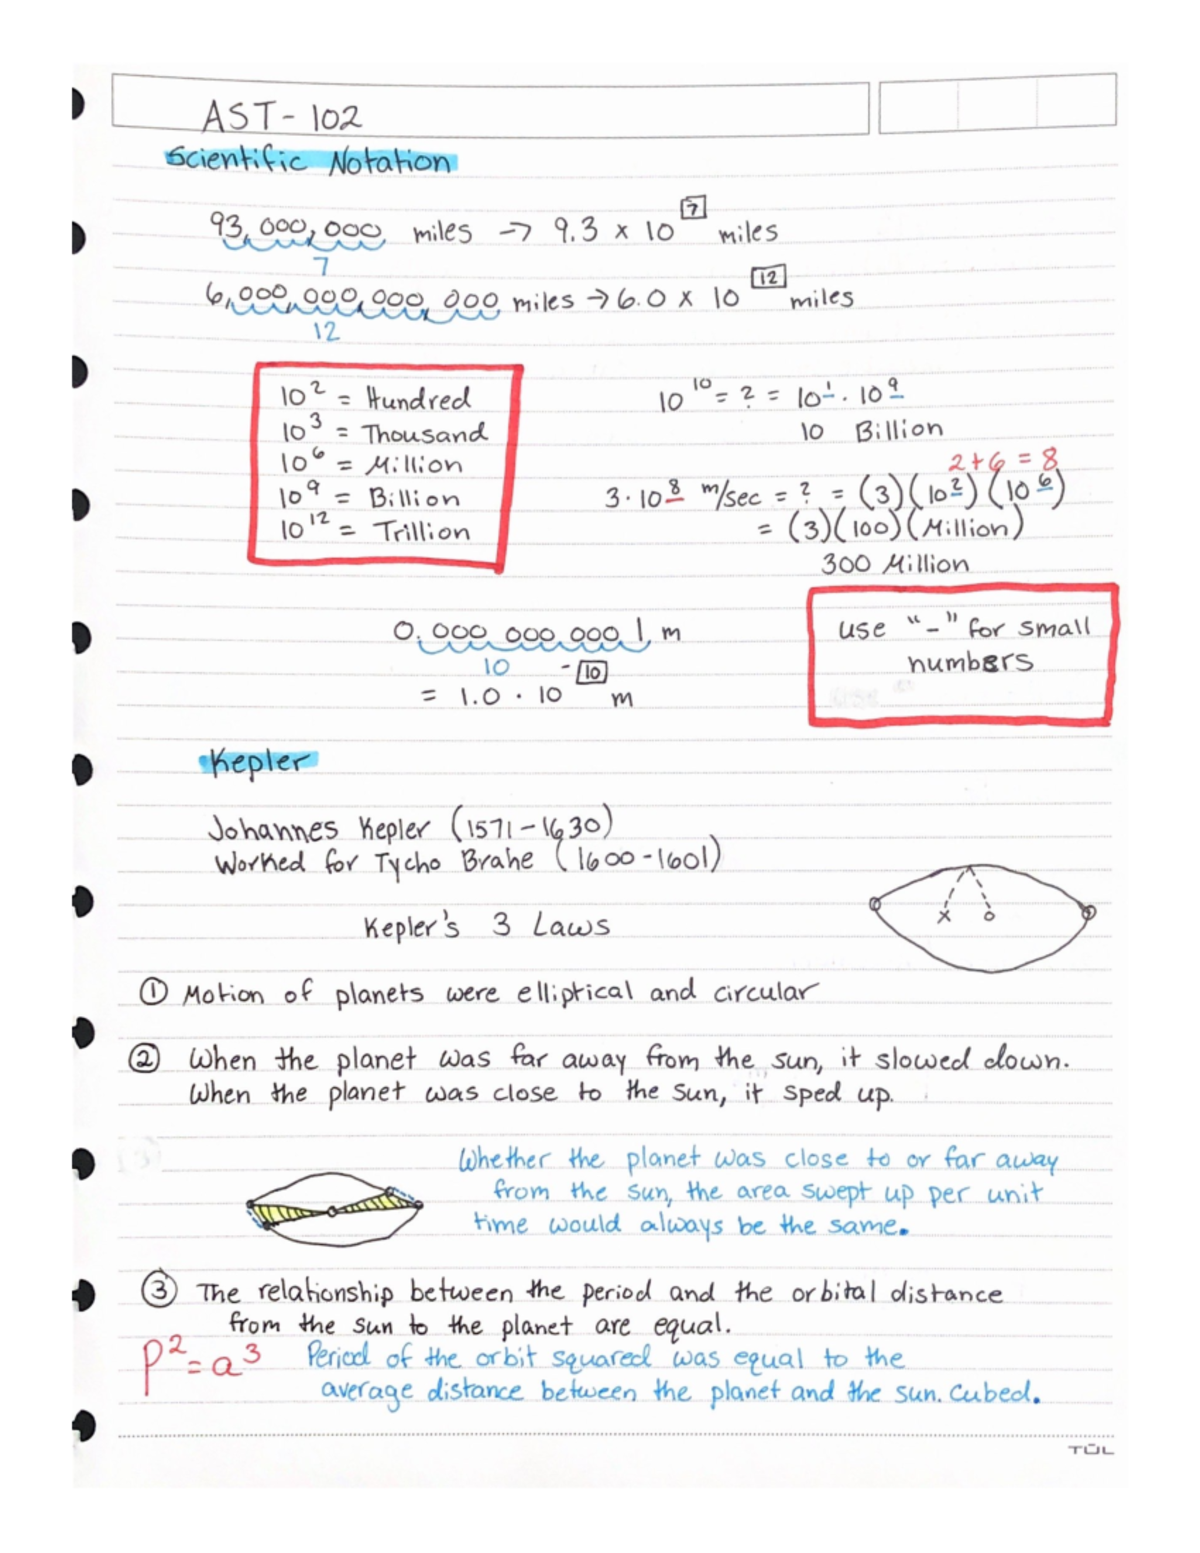 AST-102
Scientific Notation
93,000,000 miles → 9.3 x 10^7 miles
7
6,000,000,000,000 miles → 6.0 x 10^12 miles
12
10^2 = Hundred
10^3 = Thousand
10^6 = Million
10^9 = Billion
10^12 = Trillion
10^10 = ? = 10^1 · 10^9
10 Billion
2+6 = 8
3·10^8 m/sec = ? = (3)(10^2)(10^6)
= (3)(100)(Million)
300 Million
0.000 000 000 1 m
10
= 1.0 · 10^-10 m
use "-" for small
numbers
Kepler
Johannes Kepler (1571-1630)
Worked for Tycho Brahe (1600-1601)
Kepler's 3 Laws
x o
① Motion of planets were elliptical and circular
② When the planet was far away from the sun, it slowed down.
When the planet was close to the sun, it sped up.
Whether the planet was close to or far away
from the sun, the area swept up per unit
time would always be the same.
③ The relationship between the period and the orbital distance
from the sun to the planet are equal.
P^2 = a^3 Period of the orbit squared was equal to the
average distance between the planet and the sun. cubed.
TŪL